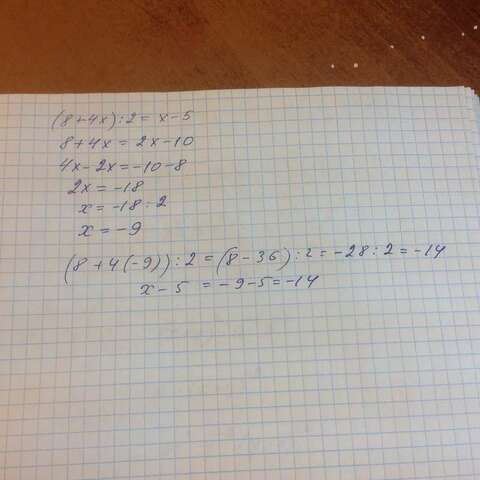 (8+4x):2=x-5
8+4x=2x-10
4x-2x=-10-8
2x=-18
x=-18:2
x=-9
(8+4(-9)):2=(8-36):2=-28:2=-14
x-5=-9-5=-14